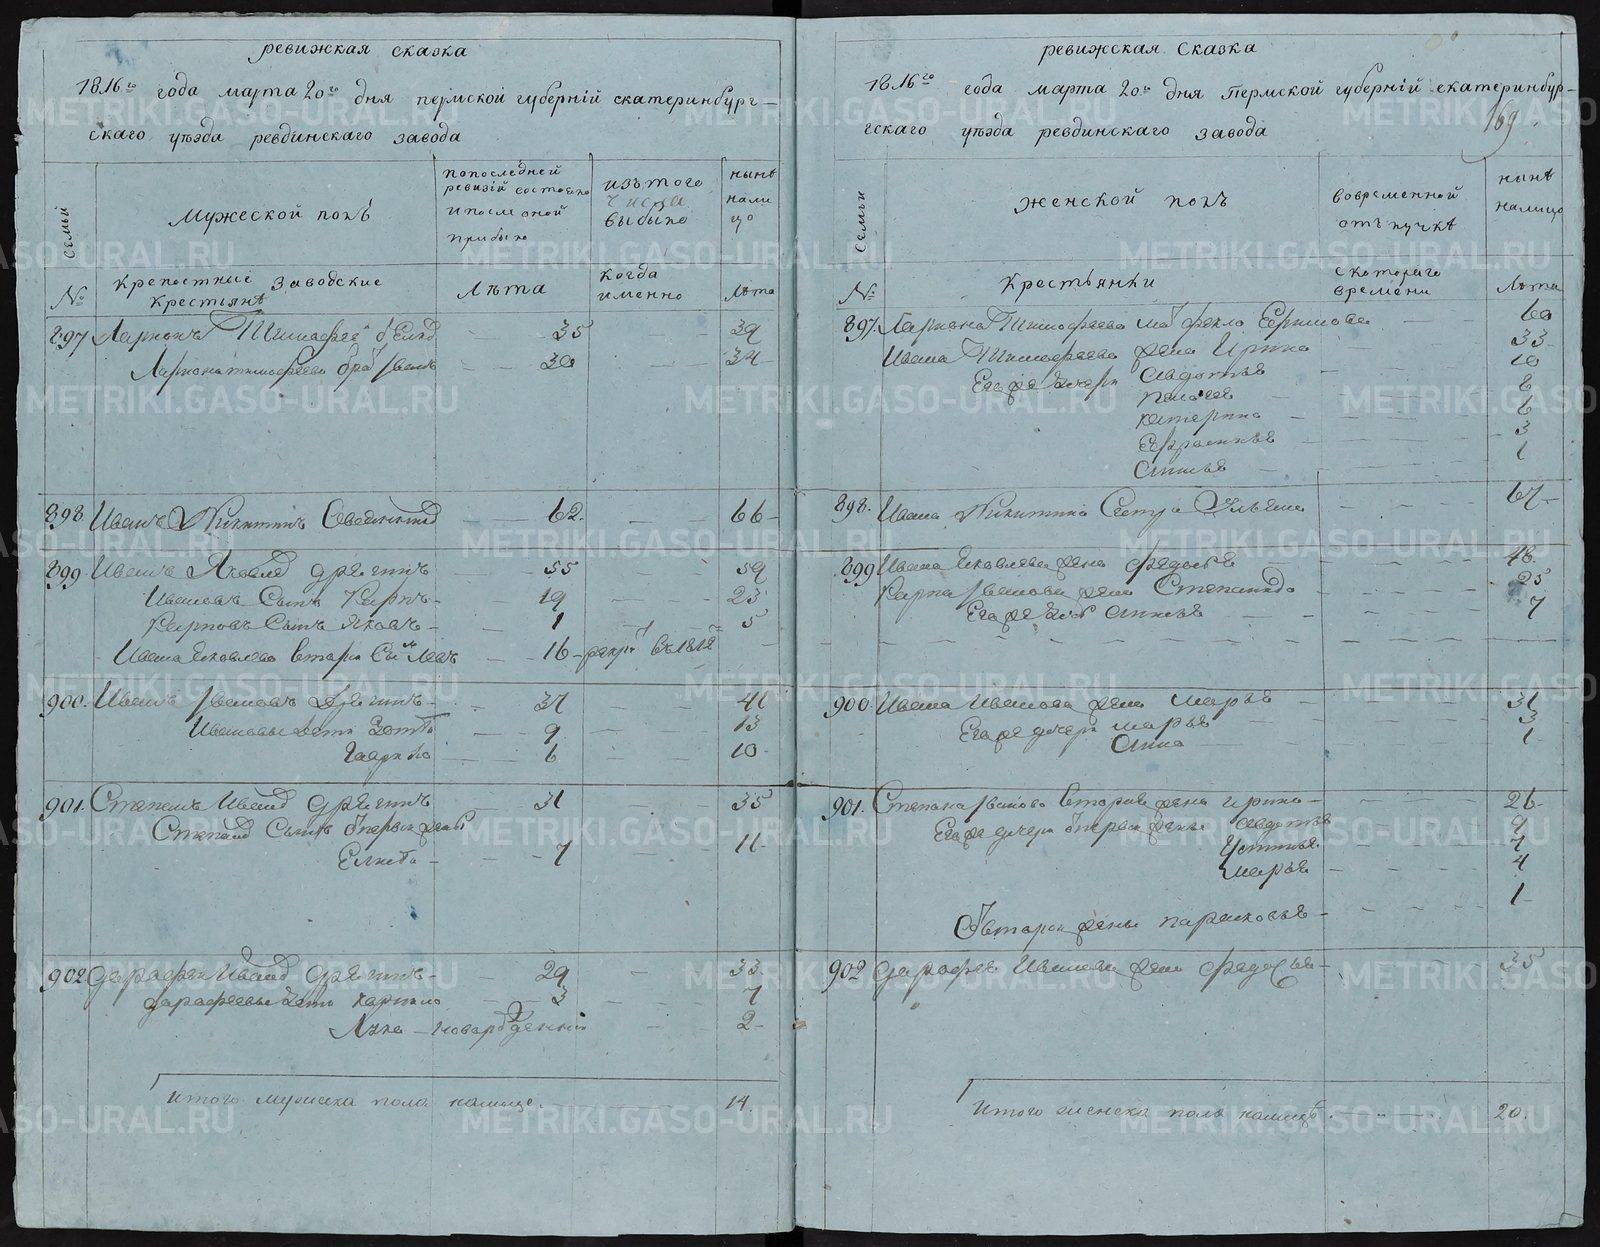 ревижская сказка
1816го года марта 20го дня пермской губерній екатеринбург-
скаго уѣзда ревдинскаго завода
семьи
мужеской полъ
попоследней ревизій состояло ипосле оной прибыло
изътого числа выбыло
нынѣ налицо
№
крепостные заводские крестьянѣ
лѣта
когда именно
лѣта
897 Ларионъ Тимофее 35 39
Лариона тимофеева бра Иванъ 30 34
898 Иванъ Никитинъ 62 66
899 Иванъ Яковле Дрягинъ 55 59
Ивановъ Сынъ Карпъ 19 23
Карповъ Сынъ Яковъ 1 5
Ивана Яковлева втарой Сынъ 16 рекру въ 1812
900. Иванъ Ивановъ Дрягинъ 37 41
Ивановы дети 9 13
Гаврило 6 10
901. Степанъ Ивано Дрягинъ 31 35
Степано Сынъ отпервой жены
7 11
902 Дарафей Ивано Дрягинъ 29 33
Дарафеевы дети Карнило 3 7
новарожденной 2
итого мужеска пола налице 14.
ревижская сказка
1816го года марта 20го дня пермской губерній екатеринбур-
гскаго уѣзда ревдинскаго завода
169
семьи
женской полъ
вовременной отълучкѣ
нынѣ налицо
№
крестьянки
скотораго времени
лѣта
897. Лариона Тимофеева ма фекла Ефимова 60
Ивана Тимофеева жена Ирина 33
Егоже дочери Авдотья 10
пелагея 8
катерина 6
Ефросинья 3
Анисья 1
898. Ивана Никитина Сестра Ульяна 67
899 Ивана Яковлева жена федосья 48
Карпа Иванова жена Степанида 25
Егоже дочь Анисья 7
900. Ивана Иванова жена марья 31
Егоже дочери марья 3
Анна 1
901. Степана Иванова вторая жена ирина 26
Егоже дочери отпервой жены Авдотья 9
Устинья 7
марья 4
Отвторой жены парасковья 1
902 Дарафея Иванова жена федосья 35
итого женска пола налице 20.
METRIKI.GASO-URAL.RU